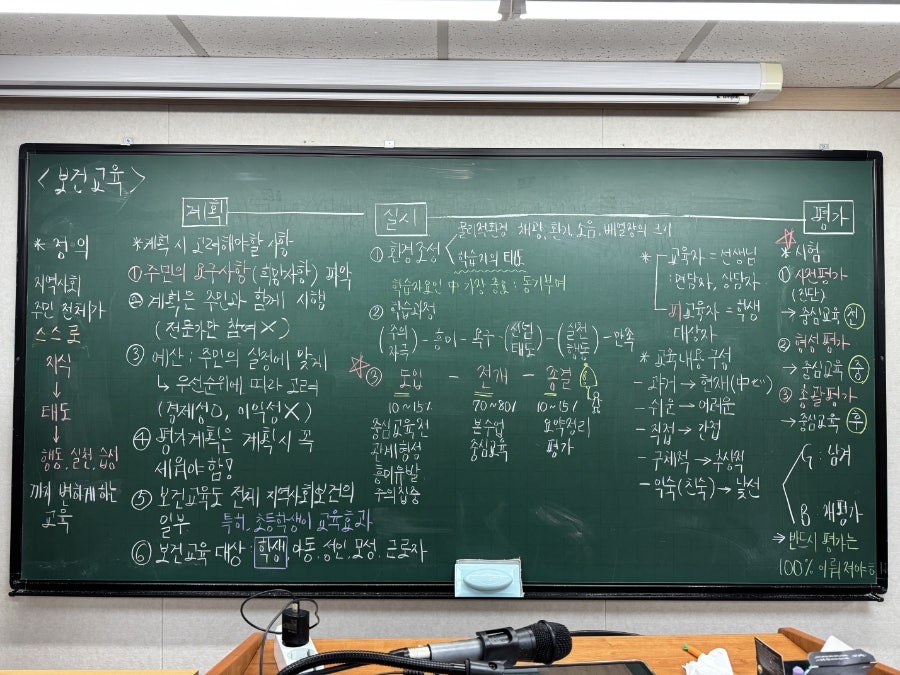 <보건교육>
계획
실시
평가
* 정의
지역사회
주민 전체가
스스로
지식
↓
태도
↓
행동, 실천, 습성
까지 변하게하는
교육
*계획 시 고려해야할 사항
① 주민의 요구사항(희망사항) 파악
② 계획은 주민과 함께 시행
(전문가만 참여 X)
③ 예산 : 주민의 실정에 맞게
↳ 우선순위에 따라 고려
(경제성O, 이익성X)
④ 평가계획은 계획시 꼭
세워야 함!
⑤ 보건교육도 전체 지역사회보건의
일부 특히, 초등학생이 교육효과
⑥ 보건교육 대상 : 학생, 아동, 성인, 모성, 근로자
① 환경조성
물리적환경 채광, 환기, 소음, 배열장의 크기
학습자의 태도
학습자요인 中 가장 중요 : 동기부여
② 학습과정
(주의 자극) - 흥미 - 욕구 - (전념 태도) - (실천 행동) - 만족
☆ ③ 도입 - 전개 - 종결
10~15% 70~80% 10~15%
중심교육전 본수업 요약정리
관계형성 중심교육 평가
흥미유발
주의집중
* 교육자 = 선생님
: 면담자, 상담자
피교육자 = 학생
대상자
* 교육내용 구성
- 과거 → 현재(中)
- 쉬운 → 어려운
- 직접 → 간접
- 구체적 → 추상적
- 익숙(친숙) → 낯선
☆
* 시험
① 사전평가
(진단)
→ 중심교육 전
② 형성 평가
→ 중심교육 중
③ 총괄평가
→ 중심교육 후
G : 삼계
B : 재평가
→ 반드시 평가는
100% 이뤄져야